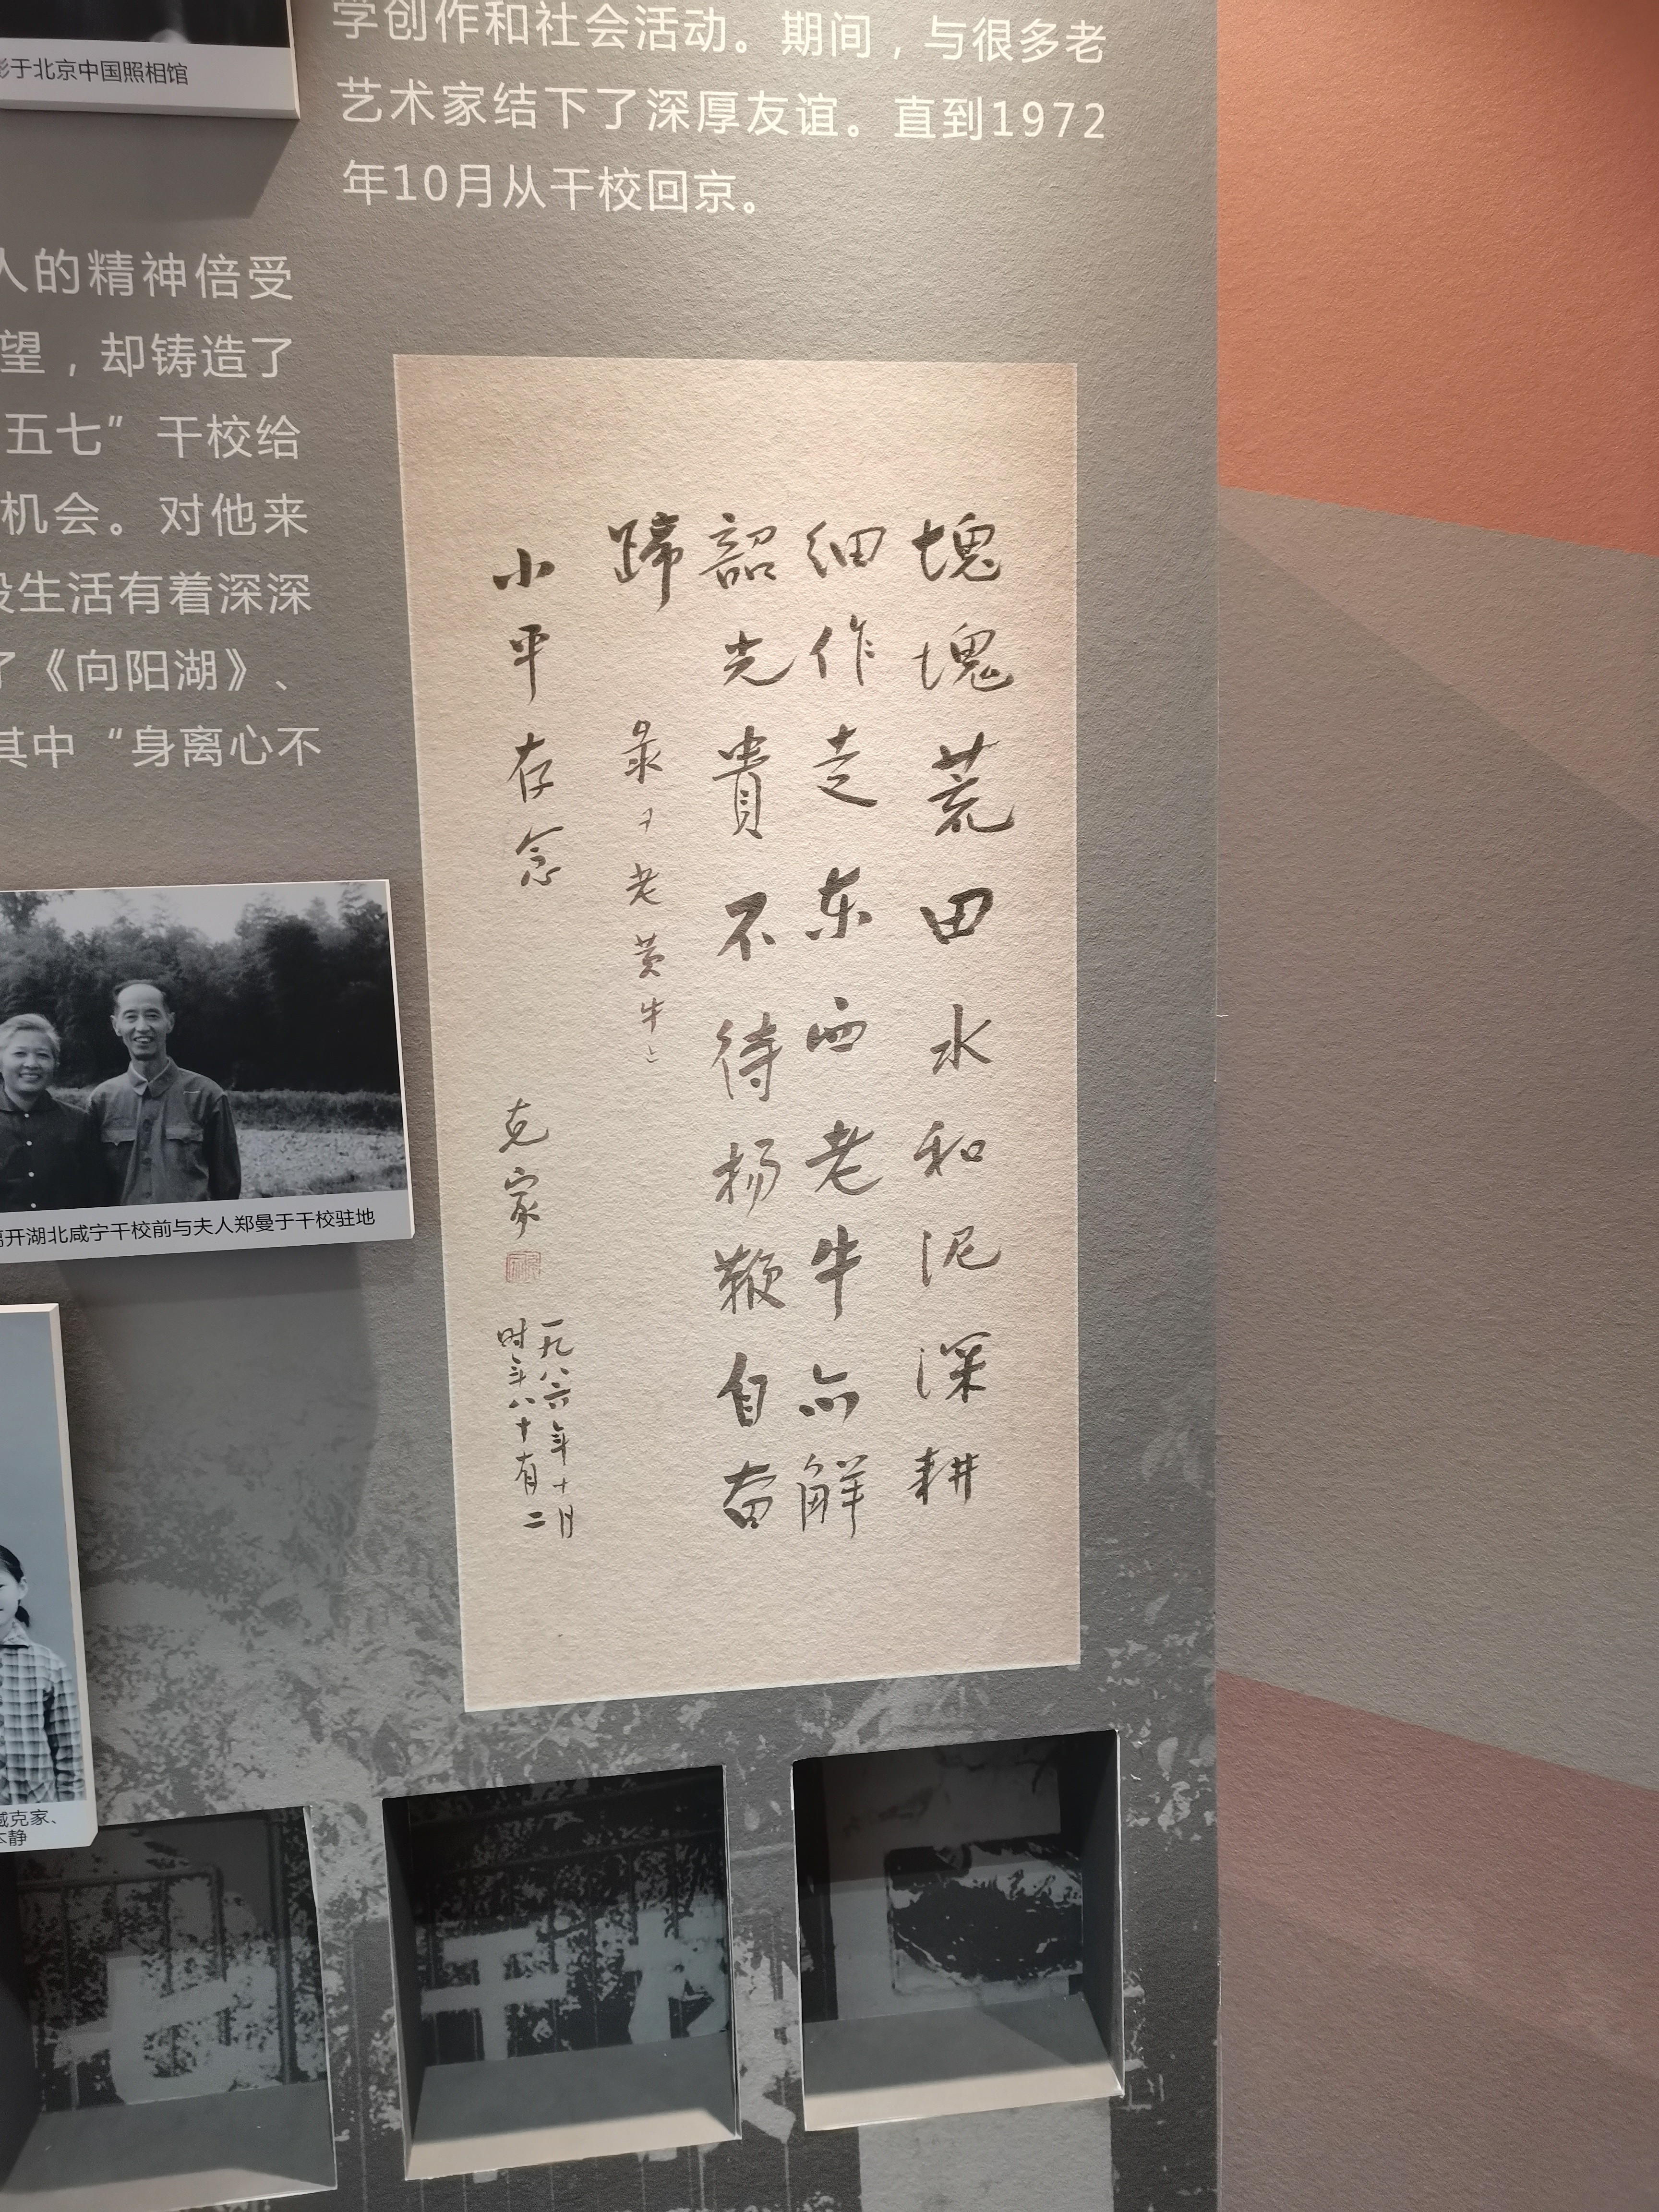 影于北京中国照相馆
学创作和社会活动。期间，与很多老
艺术家结下了深厚友谊。直到1972
年10月从干校回京。
人的精神倍受
望，却铸造了
五七”干校给
机会。对他来
段生活有着深深
了《向阳湖》、
其中“身离心不
离开湖北咸宁干校前与夫人郑曼于干校驻地
臧克家、
静
塊塊荒田水和泥深耕
细作走东西老牛亦解
韶光貴不待扬鞭自奋
蹄 录老黄牛
小平存念 克家
一九八六年十月
时年八十有二